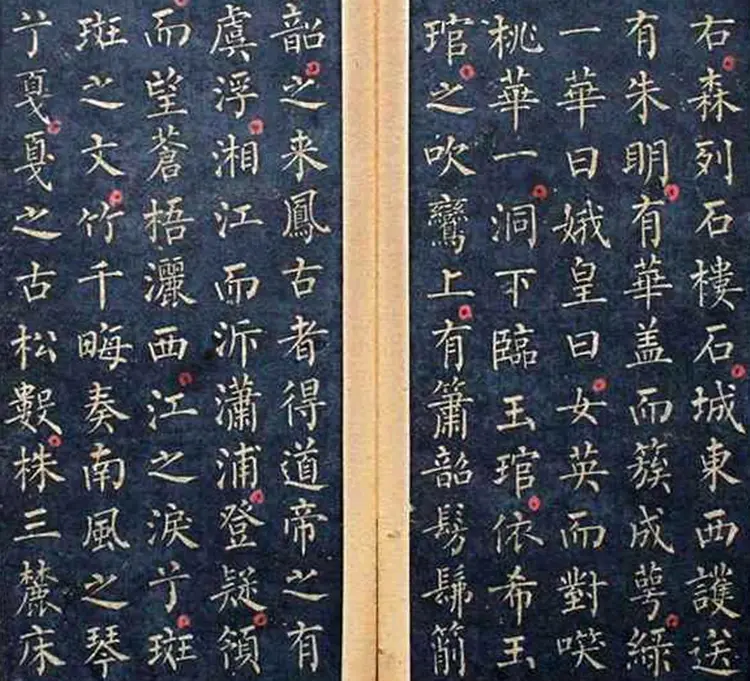 右森列石樓石城東西護送
有朱明有華盖而簇成萼綠
一華曰娥皇曰女英而對咲
桃華一洞下臨玉琯依希玉
琯之吹鸞上有簫韶髣髴箾
韶之来鳳古者得道帝之有
虞浮湘江而泝瀟浦登疑領
而望蒼梧灑西江之淚兮斑
斑之文竹千畮奏南風之琴
兮戛戛之古松數株三麓床